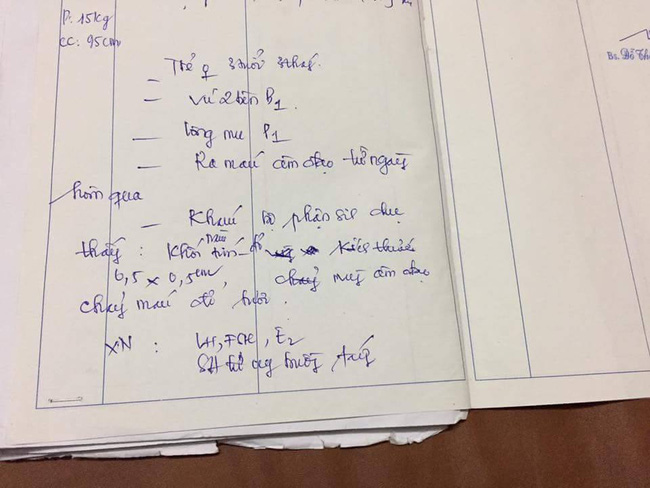 P: 15kg
CC: 95cm
Bs. Đỗ Th
Trẻ ♀ 3 tuổi 3 tháng
– Vú 2 bên B1.
– lông mu P1
– Ra máu âm đạo từ ngày
hôm qua
– Khám bộ phận sinh dục
thấy: Khối tím đỏ kích thước
0,5 x 0,5cm, âm đạo
chảy máu đỏ tươi.
XN: LH, FSH, E2
SÂ tử cung buồng trứng